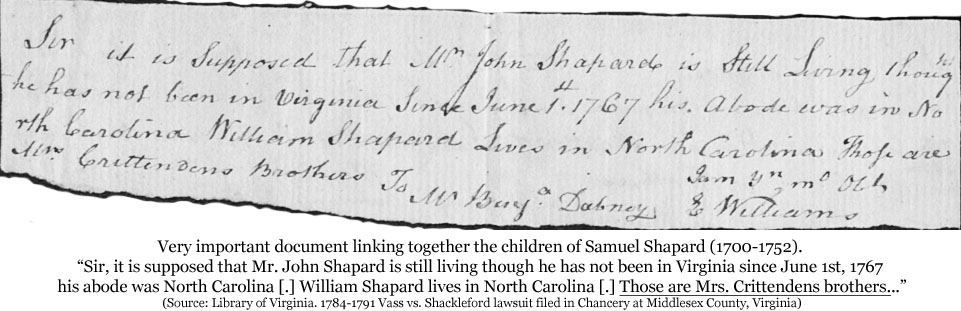 Sir it is Supposed that Mr. John Shapard is Still Living, thoug
he has not been in Virginia Since June 1st. 1767 his. Abode was in No
rth Carolina William Shapard Lives in North Carolina Those are
Mrs Crittendens Brothers To
Mr Benja. Dabney
I am Yr. mo Obt
E Williams
Very important document linking together the children of Samuel Shapard (1700-1752).
“Sir, it is supposed that Mr. John Shapard is still living though he has not been in Virginia since June 1st, 1767
his abode was North Carolina [.] William Shapard lives in North Carolina [.] Those are Mrs. Crittendens brothers...”
(Source: Library of Virginia. 1784-1791 Vass vs. Shackleford lawsuit filed in Chancery at Middlesex County, Virginia)